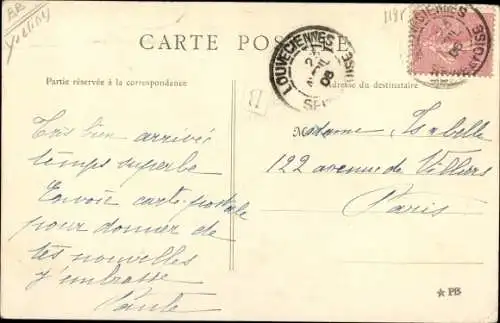 CARTE POSTALE
LOUVECIENNES
SEINE
OISE
08
Partie réservée à la correspondance
Adresse du destinataire
Très bien arrivée
temps superbe
Envoie carte postale
pour donner de
tes nouvelles
J'embrasse
Madame Isabelle
122 avenue de Villiers
Paris
★ PB